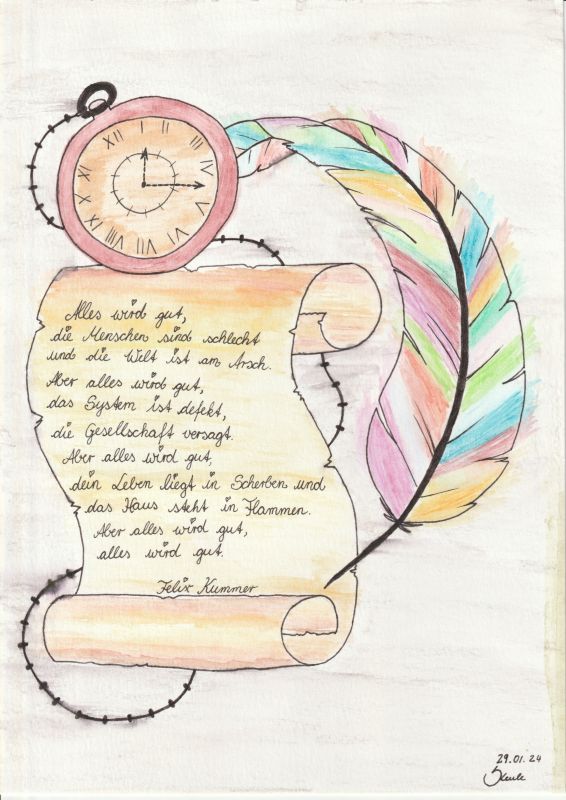 Alles wird gut,
die Menschen sind schlecht
und die Welt ist am Arsch.
Aber alles wird gut,
das System ist defekt,
die Gesellschaft versagt.
Aber alles wird gut,
dein Leben liegt in Scherben und
das Haus steht in Flammen.
Aber alles wird gut,
alles wird gut.
Felix Kummer
29.01.24